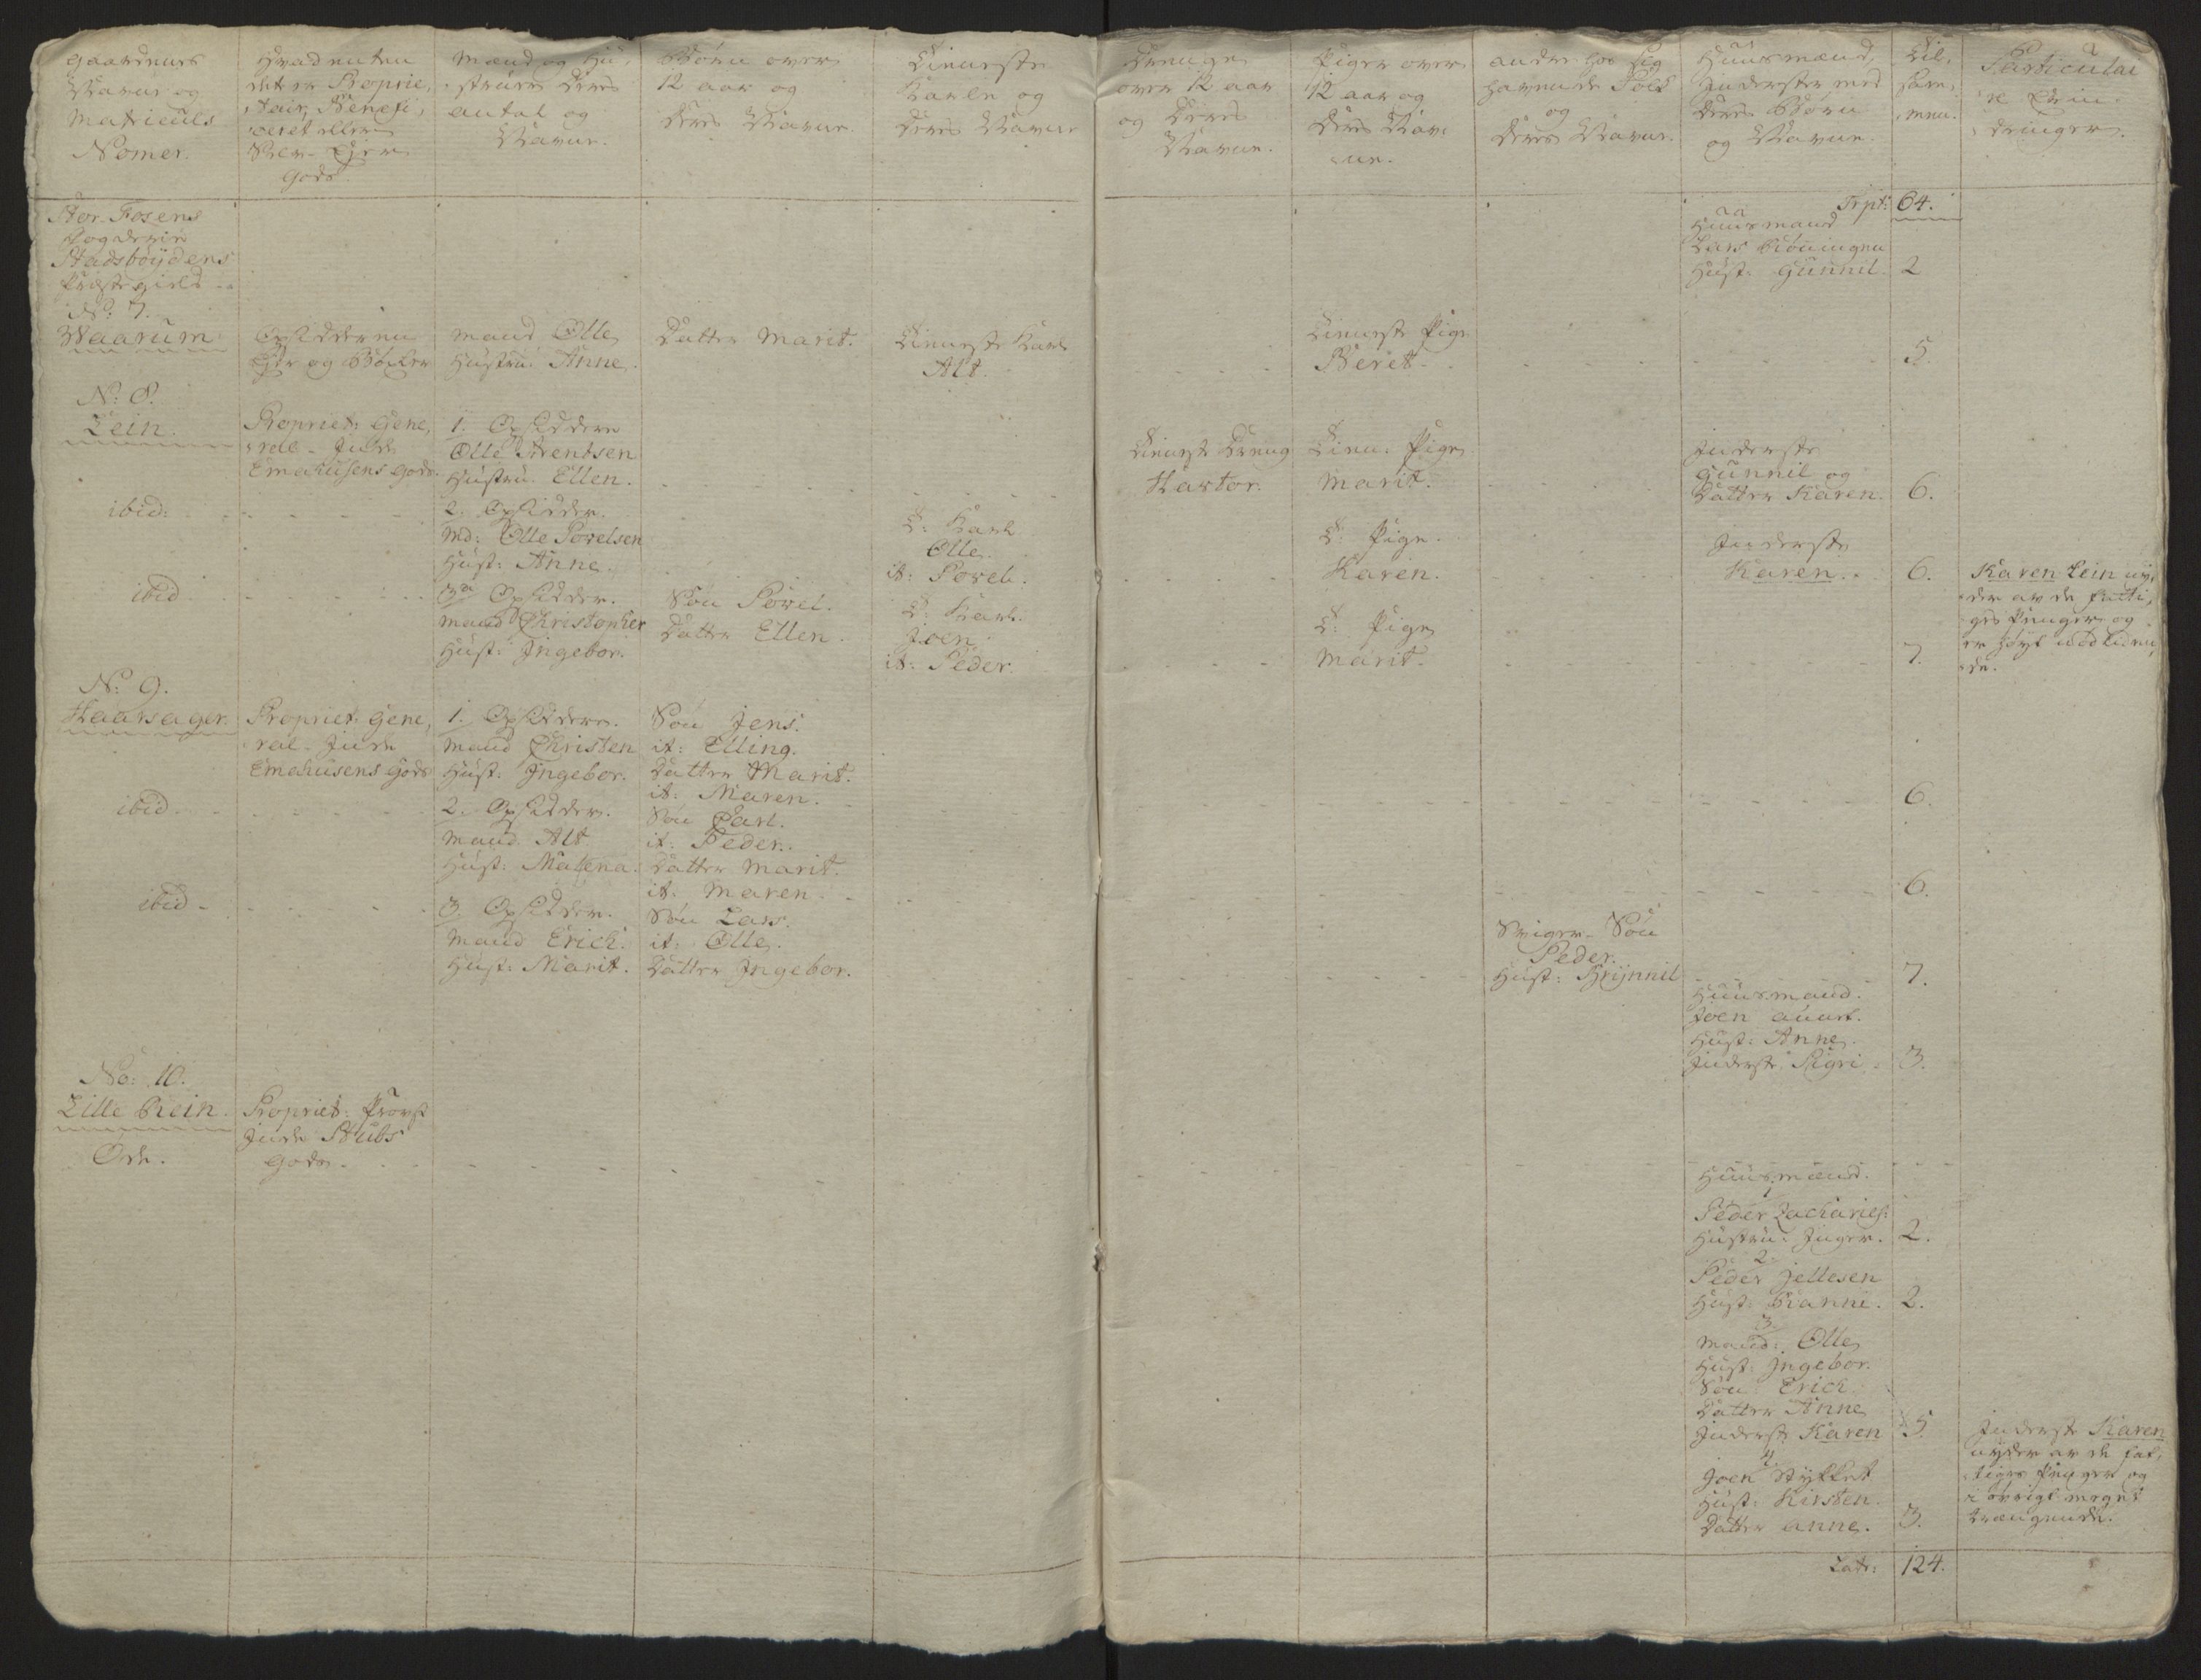 Gaardenes
Navne og
Matriculs
Nomer.
Hvad enten
det er Proprie,
tair, Benefi,
ceret eller
Selv-Ejer
Gods.
Mænd og Hu,
struer Deres
antal og
Navne.
Børn over
12 aar og
Deres Navne.
Tieneste
Karle og
Deres Navne
Drenge
over 12 aar
og Deres
Navne.
Piger over
12 aar og
Deres Nav,
ne.
andre hos sig
havende Folk
og
Deres Navne.
Huusmænd,
Inderster med
Deres Børn
og Navne.
Til,
sam,
men.
Particulai
re Erin
dringer.
Stor-Fosens
Fogderie
Stadsbøydens
Præstegield
Trpt: 64.
Huusmand
Lars Rønningen
Hust: Gunnil. 2
No: 7.
Waarum
Opsidderen
Ejer og Bøxler
Mand Olle
Hustru: Anne.
Datter Marit.
Tieneste Karl
Alt.
Tieneste Pige
Beret.
5.
No: 8.
Lein.
Propriet: Gene,
ral-Inde
Emahusens Gods.
1. Opsiddere
Olle Arentsen
Hustru. Ellen.
Tienste Dreng
Hartor.
Tien: Pige
Marit.
Inderste
Gunnil og
Datter Karen. 6.
ibid:
2. Opsidder.
Md: Olle Povelsen
Hust: Anne.
T: Karl
Olle.
it: Povel.
T: Pige.
Karen.
Inderste
Karen. 6.
Karen Lein ny,
der av de fatti,
ges Penger og
er høyt udlevn,
de.
ibid
3. Opsidder.
Mand Christopher
Hust: Ingebor.
Søn Povel.
Datter Ellen.
T: Karl.
Joen
it: Peder.
T: Pige
Marit.
7.
No: 9.
Haarsager.
Propriet: Gene,
ral-Inde
Emahusens Gods
1. Opsiddere.
Mand Christen
Hust: Ingebor.
Søn Jens.
it: Elling.
Datter Marit.
it: Maren.
6.
ibid
2. Opsidder.
Mand Alt
Hust: Malena.
Søn Carl.
it: Peder.
Datter Marit.
it: Maren
6.
ibid
3. Opsidder.
Mand Erich.
Hust: Marit.
Søn Lars.
it: Olle.
Datter Ingebor.
Sviger-Søn
Peder.
Hust: Brynnil
7.
Huusmand.
Joen
Hust: Anne.
Inderste Sigri 3.
No: 10.
Lille Rein.
Øde.
Propriet: Provst
Inde Stubs
Gods.
Huusmænd.
1
Peder Zacharies:
Hustru: Inger. 2.
2
Peder Jellesen
Hust: Ranni. 2.
3
Mand: Olle
Hust: Ingebor.
Søn Erich
Datter Anne
Inderst: Karen 5.
Inderste Karen
nyder av de fat,
tiges Penger og
i øvrigt meget
trængende.
4
Joen Stykket
Hust: Kirsten.
Datter Anne. 3.
Lat: 124.